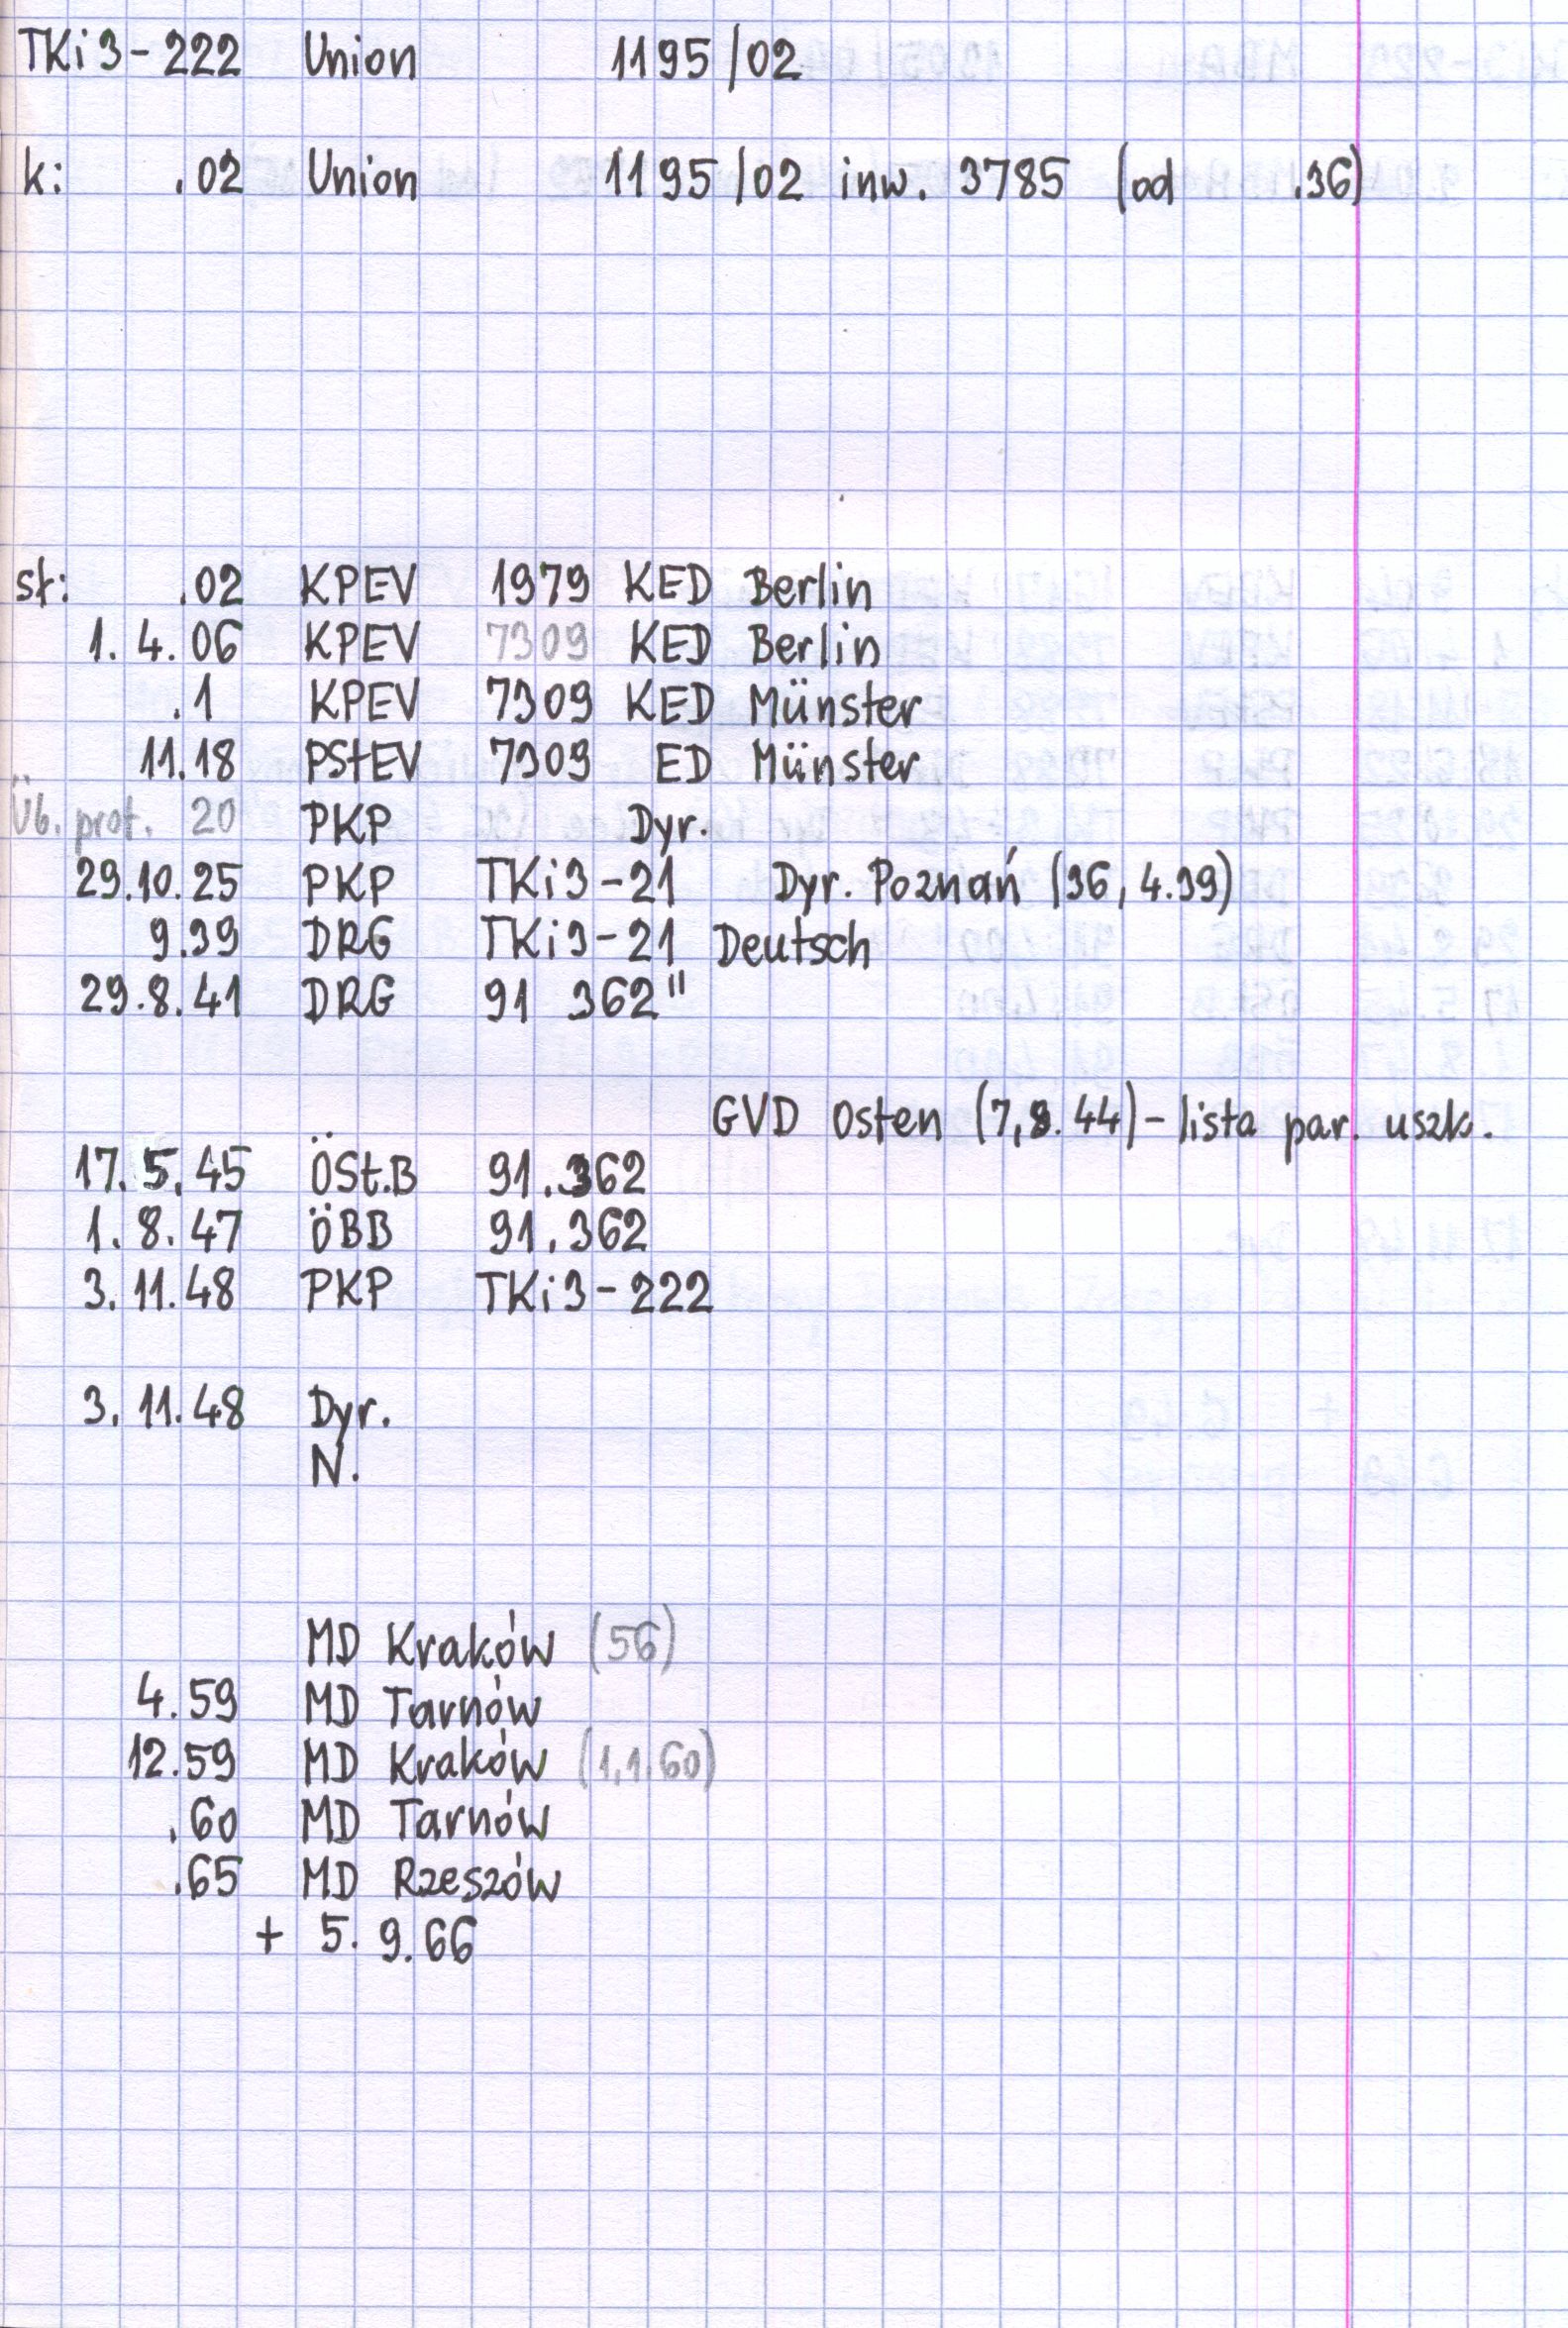 TKi3-222 Union 1195/02
k: .02 Union 1195/02 inw. 3785 (od .36)
st: .02 KPEV 1979 KED Berlin
1.4.06 KPEV 7309 KED Berlin
.1 KPEV 7309 KED Münster
11.18 PStEV 7309 ED Münster
Üb. prot. 20 PKP Dyr.
29.10.25 PKP TKi3-21 Dyr. Poznań (36, 4.39)
9.39 DRG TKi3-21 Deutsch
29.8.41 DRG 91 362"
GVD Osten (7,8.44) - lista par. uszk.
17.5.45 ÖSt.B 91.362
1.8.47 ÖBB 91.362
3.11.48 PKP TKi3-222
3.11.48 Dyr.
N.
MD Kraków (56)
4.59 MD Tarnów
12.59 MD Kraków (1,1.60)
.60 MD Tarnów
.65 MD Rzeszów
+ 5.9.66